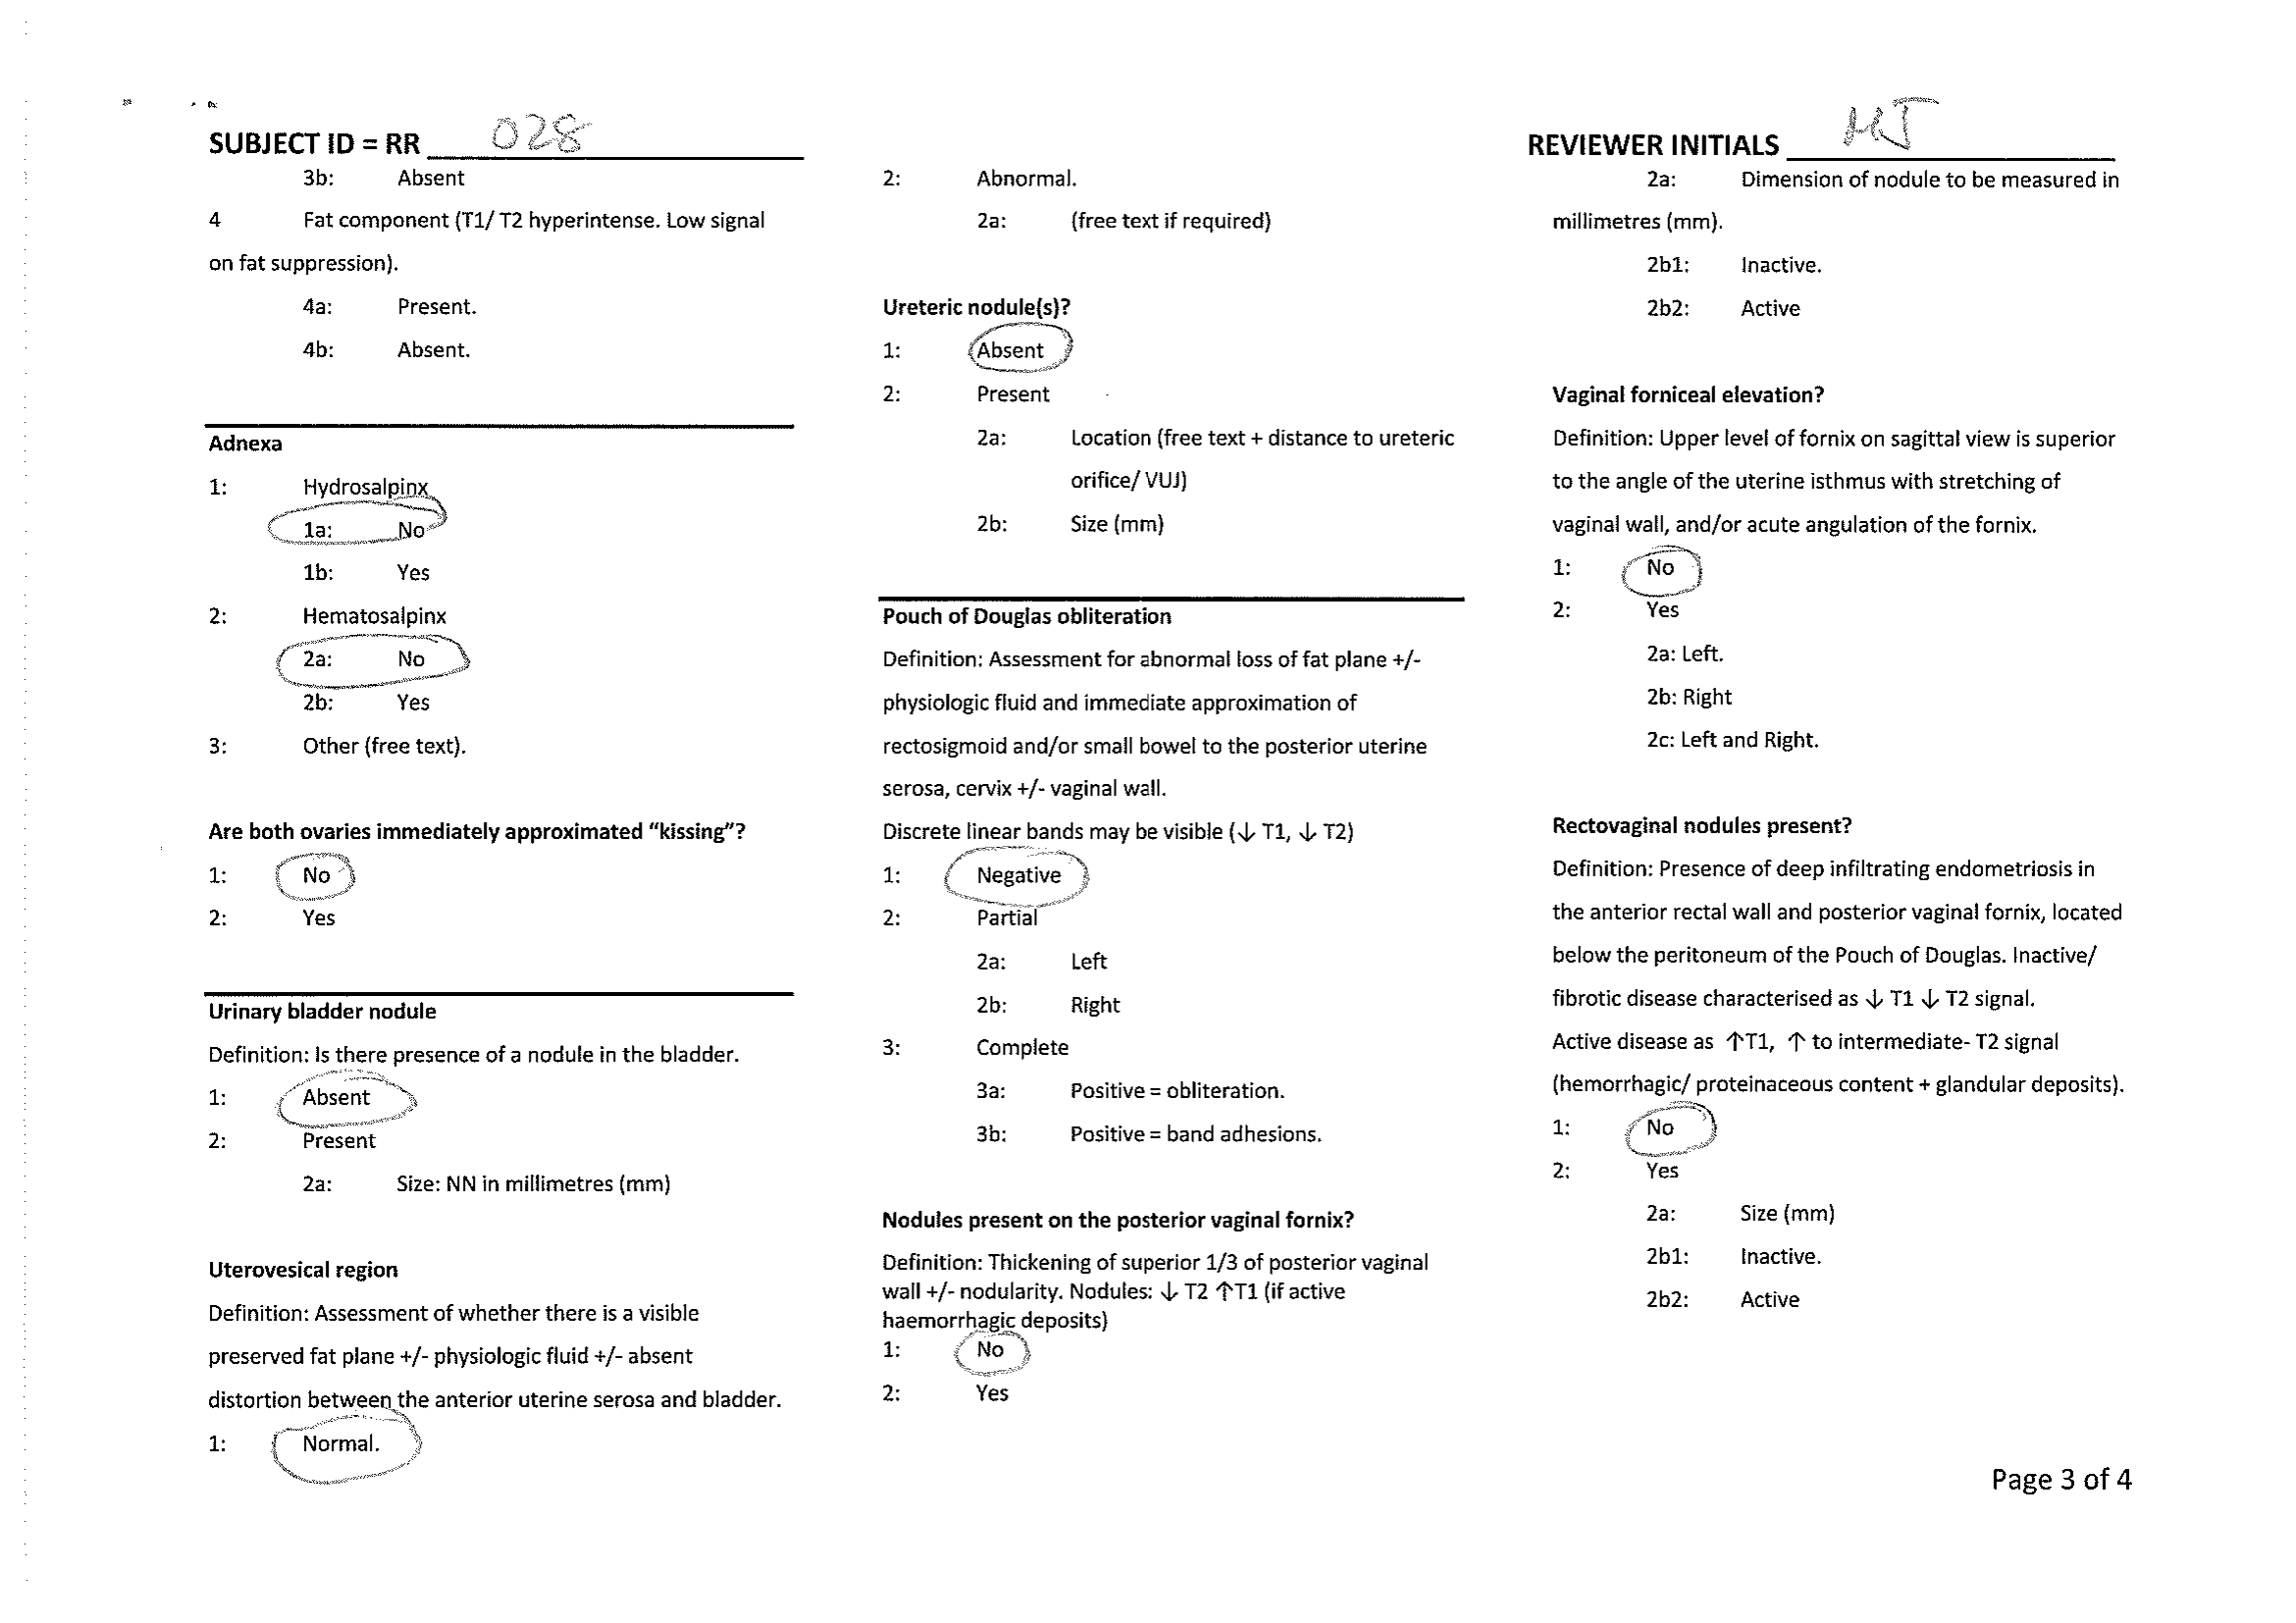 SUBJECT ID = RR 028
REVIEWER INITIALS MJ
3b: Absent
4 Fat component (T1/ T2 hyperintense. Low signal
on fat suppression).
4a: Present.
4b: Absent.
Adnexa
1: Hydrosalpinx
1a: No
1b: Yes
2: Hematosalpinx
2a: No
2b: Yes
3: Other (free text).
Are both ovaries immediately approximated “kissing”?
1: No
2: Yes
Urinary bladder nodule
Definition: Is there presence of a nodule in the bladder.
1: Absent
2: Present
2a: Size: NN in millimetres (mm)
Uterovesical region
Definition: Assessment of whether there is a visible
preserved fat plane +/- physiologic fluid +/- absent
distortion between the anterior uterine serosa and bladder.
1: Normal.
2: Abnormal.
2a: (free text if required)
Ureteric nodule(s)?
1: Absent
2: Present
2a: Location (free text + distance to ureteric
orifice/ VUJ)
2b: Size (mm)
Pouch of Douglas obliteration
Definition: Assessment for abnormal loss of fat plane +/-
physiologic fluid and immediate approximation of
rectosigmoid and/or small bowel to the posterior uterine
serosa, cervix +/- vaginal wall.
Discrete linear bands may be visible (↓ T1, ↓ T2)
1: Negative
2: Partial
2a: Left
2b: Right
3: Complete
3a: Positive = obliteration.
3b: Positive = band adhesions.
Nodules present on the posterior vaginal fornix?
Definition: Thickening of superior 1/3 of posterior vaginal
wall +/- nodularity. Nodules: ↓ T2 ↑T1 (if active
haemorrhagic deposits)
1: No
2: Yes
2a: Dimension of nodule to be measured in
millimetres (mm).
2b1: Inactive.
2b2: Active
Vaginal forniceal elevation?
Definition: Upper level of fornix on sagittal view is superior
to the angle of the uterine isthmus with stretching of
vaginal wall, and/or acute angulation of the fornix.
1: No
2: Yes
2a: Left.
2b: Right
2c: Left and Right.
Rectovaginal nodules present?
Definition: Presence of deep infiltrating endometriosis in
the anterior rectal wall and posterior vaginal fornix, located
below the peritoneum of the Pouch of Douglas. Inactive/
fibrotic disease characterised as ↓ T1 ↓ T2 signal.
Active disease as ↑T1, ↑ to intermediate- T2 signal
(hemorrhagic/ proteinaceous content + glandular deposits).
1: No
2: Yes
2a: Size (mm)
2b1: Inactive.
2b2: Active
Page 3 of 4